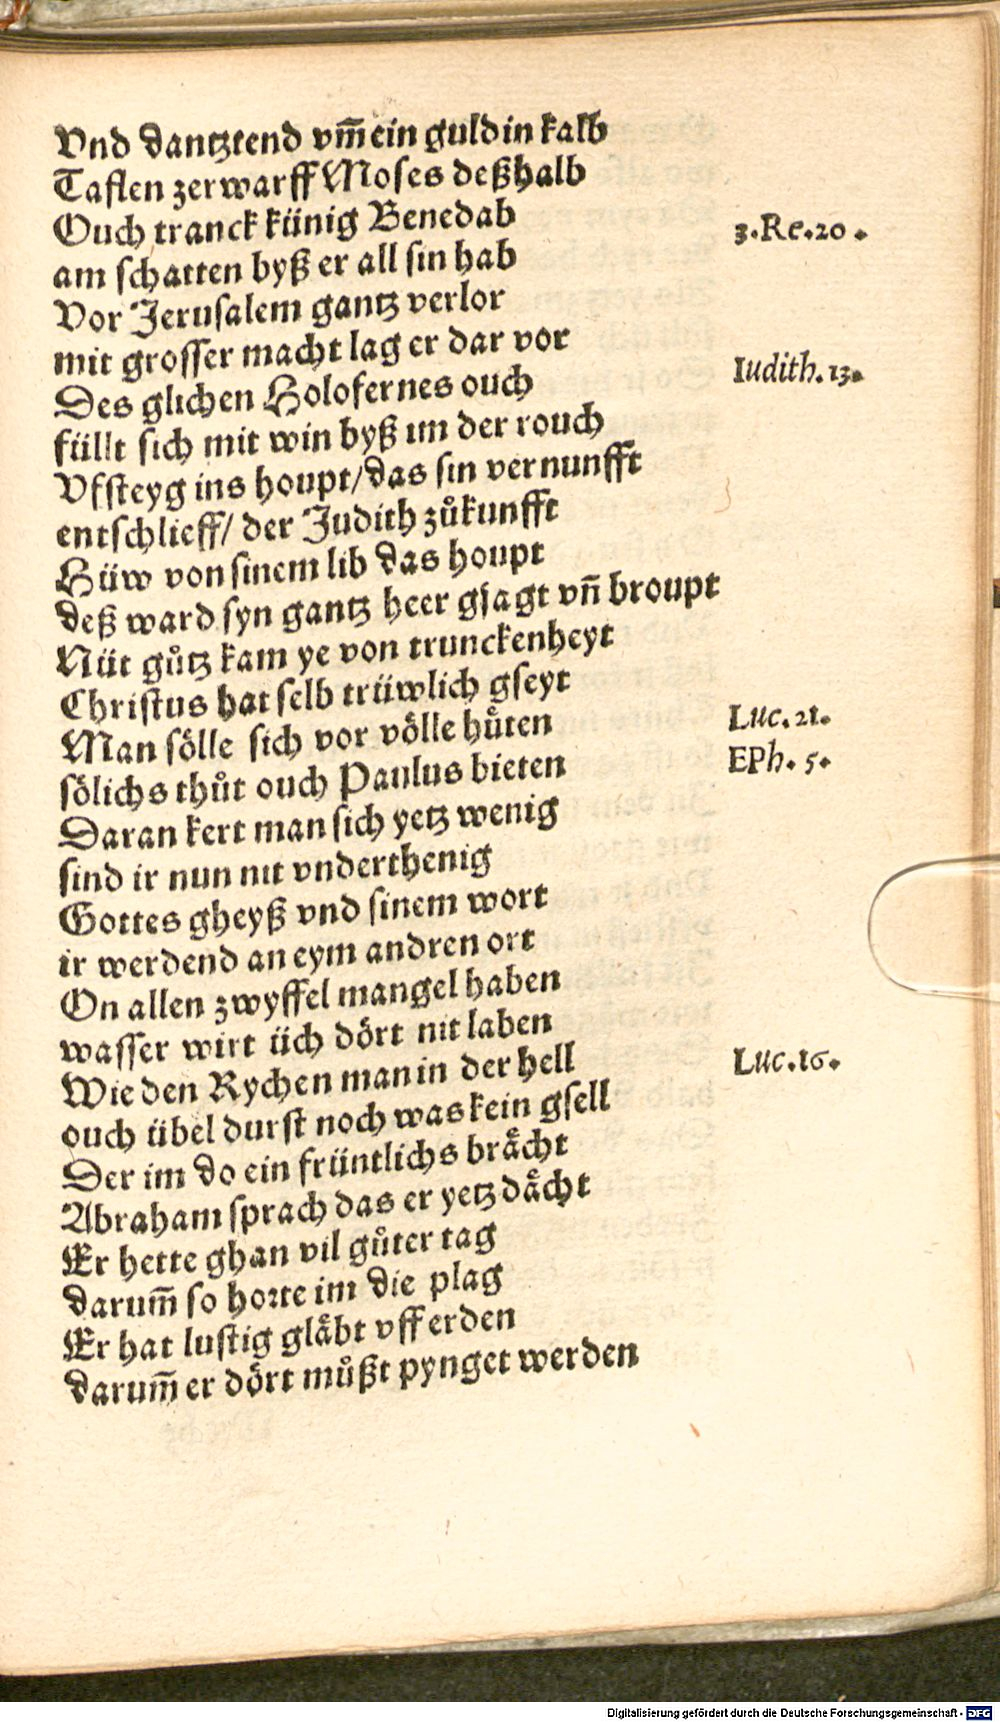 Vnd dantztend vm̄ ein guldin kalb
Taflen zerwarff Moses deßhalb
Ouch tranck künig Benedab
3.Re.20.
am schatten byß er all sin hab
Vor Jerusalem gantz verlor
mit grosser macht lag er dar vor
Iudith.13.
Des glichen Holofernes ouch
füllt sich mit win byß im der rouch
Vfsteyg ins houpt/das sin vernunfft
entschlieff/ der Judith zůkunfft
Hüw von sinem lib das houpt
deß ward syn gantz heer gjagt vn̄ broupt
Nüt gůtz kam ye von trunckenheyt
Christus hat selb trüwlich gseyt
Man sölle sich vor völle hůten
Luc.21.
sölichs thůt ouch Paulus bieten
EPh.5.
Daran kert man sich yetz wenig
sind ir nun nit vnderthenig
Gottes gheyß vnd sinem wort
ir werdend an eym andren ort
On allen zwyffel mangel haben
wasser wirt üch dört nit laben
Wie den Rychen man in der hell
Luc.16.
ouch übel durst noch was kein gsell
Der im do ein früntlichs brächt
Abraham sprach das er yetz dächt
Er hette ghan vil gůter tag
darum̄ so horte im die plag
Er hat lustig gläbt vff erden
darum̄ er dört můßt pynget werden
Digitalisierung gefördert durch die Deutsche Forschungsgemeinschaft - DFG